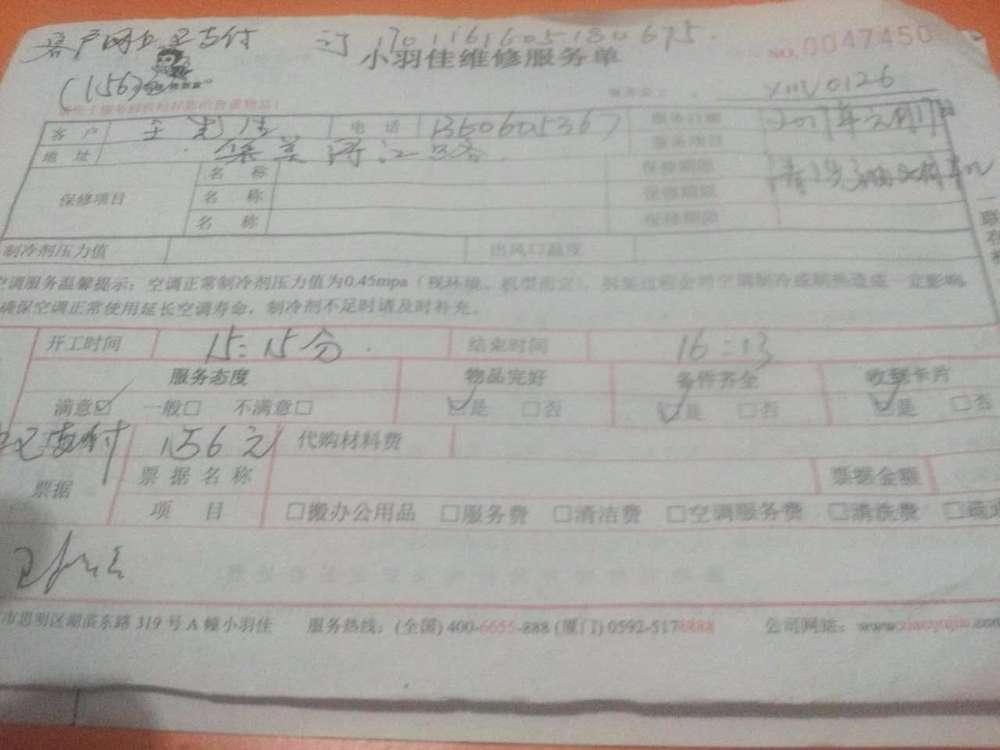 客户网上已支付 订 1701161605180675.
小羽佳维修服务单 NO.0047450
(156元) xm0126
客 户 电 话 服务日期 2017年元月17日
地 址 集美 服务项目
保修项目 名 称 保修期限
名 称 保修期限
名 称 保修期限
制冷剂压力值 出风口温度
空调服务温馨提示：空调正常制冷剂压力值为0.45mpa（视环境、机型而定），拆装过程会对空调制冷或制热造成一定影响，
确保空调正常使用延长空调寿命，制冷剂不足时请及时补充。
开工时间 15:15分 结束时间 16:13
服务态度 物品完好 条件齐全 收到卡片
满意☑ 一般□ 不满意□ ☑是 □否 ☑是 □否 ☑是 □否
已支付 156元 代购材料费
票据 票据名称 票据金额
项 目 □搬办公用品 □服务费 □清洁费 □空调服务费 □清洗费
市思明区湖滨东路 319 号 A 幢小羽佳 服务热线：(全国) 400-6655-888 (厦门) 0592-5178888 公司网站：www.xiaoyujia.com